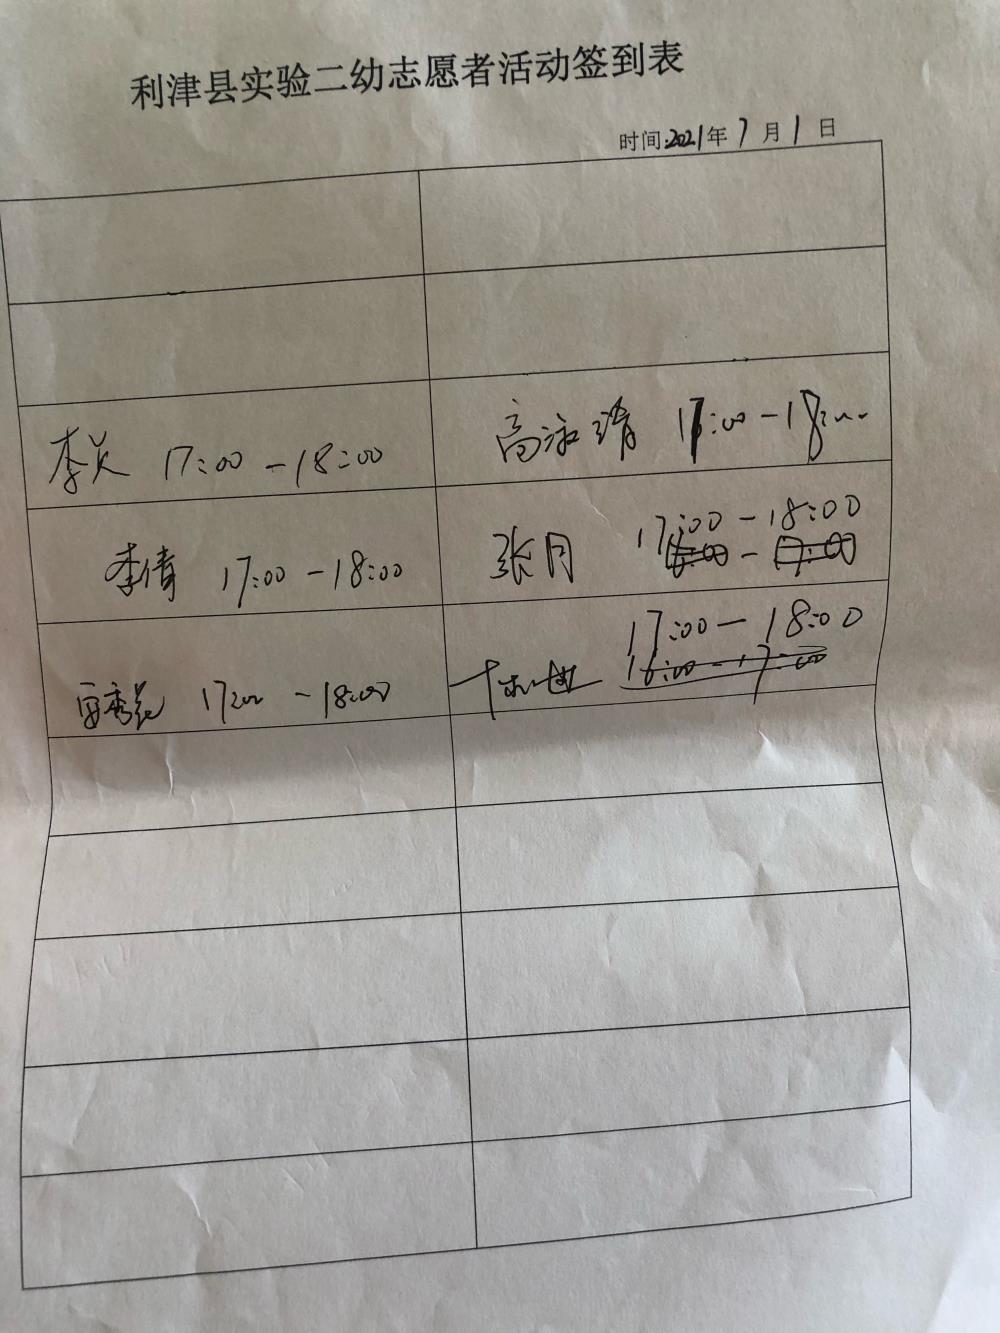 利津县实验二幼志愿者活动签到表
时间:2021年7月1日
李兵 17:00-18:00
高永清 17:00-18:00
李倩 17:00-18:00
张月 17:00-18:00
秀花 17:00-18:00
17:00-18:00
16:00-17:00